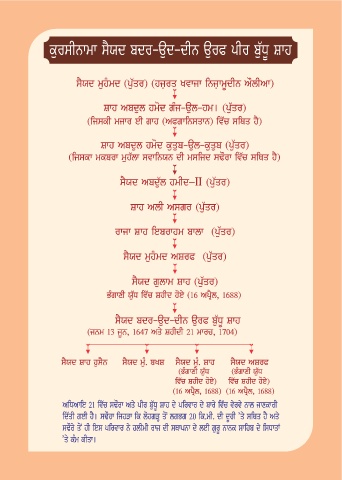 ਕੁਰਸੀਨਾਮਾ ਸੈਯਦ ਬਦਰ-ਉਦ-ਦੀਨ ਉਰਫ ਪੀਰ ਬੁੱਧੂ ਸ਼ਾਹ
ਸੈਯਦ ਮੁਹੰਮਦ (ਪੁੱਤਰ) (ਹਜ਼ਰਤ ਖਵਾਜਾ ਨਿਜ਼ਾਮੂਦੀਨ ਔਲੀਆ)
ਸ਼ਾਹ ਅਬਦੁਲ ਹਮੋਦ ਗੰਜ-ਉਲ-ਹਮ। (ਪੁੱਤਰ)
(ਜਿਸਕੀ ਮਜਾਰ ਈ ਗਾਹ (ਅਫਗਾਨਿਸਤਾਨ) ਵਿੱਚ ਸਥਿਤ ਹੈ)
ਸ਼ਾਹ ਅਬਦੁਲ ਹਮੋਦ ਕੁਤੁਬ-ਉਲ-ਕੁਤੁਬ (ਪੁੱਤਰ)
(ਜਿਸਕਾ ਮਕਬਰਾ ਮੁਹੱਲਾ ਸਵਾਨਿਯਨ ਦੀ ਮਸਜਿਦ ਸਢੌਰਾ ਵਿੱਚ ਸਥਿਤ ਹੈ)
ਸੈਯਦ ਅਬਦੁੱਲ ਹਮੀਦ-II (ਪੁੱਤਰ)
ਸ਼ਾਹ ਅਲੀ ਅਸਗਰ (ਪੁੱਤਰ)
ਰਾਜਾ ਸ਼ਾਹ ਇਬਰਾਹਮ ਬਾਲਾ (ਪੁੱਤਰ)
ਸੈਯਦ ਮੁਹੰਮਦ ਅਸ਼ਰਫ (ਪੁੱਤਰ)
ਸੈਯਦ ਗੁਲਾਮ ਸ਼ਾਹ (ਪੁੱਤਰ)
ਭੰਗਾਣੀ ਯੁੱਧ ਵਿੱਚ ਸ਼ਹੀਦ ਹੋਏ (16 ਅਪ੍ਰੈਲ, 1688)
ਸੈਯਦ ਬਦਰ-ਉਦ-ਦੀਨ ਉਰਫ ਬੁੱਧੂ ਸ਼ਾਹ
(ਜਨਮ 13 ਜੂਨ, 1647 ਅਤੇ ਸ਼ਹੀਦੀ 21 ਮਾਰਚ, 1704)
ਸੈਯਦ ਸ਼ਾਹ ਹੁਸੈਨ ਸੈਯਦ ਮੁੰ. ਬਖਸ਼ ਸੈਯਦ ਮੁੰ. ਸ਼ਾਹ ਸੈਯਦ ਅਸ਼ਰਫ
(ਭੰਗਾਣੀ ਯੁੱਧ (ਭੰਗਾਣੀ ਯੁੱਧ
ਵਿੱਚ ਸ਼ਹੀਦ ਹੋਏ) ਵਿੱਚ ਸ਼ਹੀਦ ਹੋਏ)
(16 ਅਪ੍ਰੈਲ, 1688) (16 ਅਪ੍ਰੈਲ, 1688)
ਅਧਿਆਇ 21 ਵਿੱਚ ਸਢੌਰਾ ਅਤੇ ਪੀਰ ਬੁੱਧੂ ਸ਼ਾਹ ਦੇ ਪਰਿਵਾਰ ਦੇ ਬਾਰੇ ਵਿੱਚ ਵੇਰਵੇ ਨਾਲ ਜਾਣਕਾਰੀ
ਦਿੱਤੀ ਗਈ ਹੈ। ਸਢੌਰਾ ਜਿਹੜਾ ਕਿ ਲੋਹਗੜ੍ਹ ਤੋਂ ਲਗਭਗ 20 ਕਿ.ਮੀ. ਦੀ ਦੂਰੀ 'ਤੇ ਸਥਿਤ ਹੈ ਅਤੇ
ਸਢੌਰੇ ਤੋਂ ਹੀ ਇਸ ਪਰਿਵਾਰ ਨੇ ਹਲੀਮੀ ਰਾਜ ਦੀ ਸਥਾਪਨਾ ਦੇ ਲਈ ਗੁਰੂ ਨਾਨਕ ਸਾਹਿਬ ਦੇ ਸਿਧਾਂਤਾਂ
'ਤੇ ਕੰਮ ਕੀਤਾ।